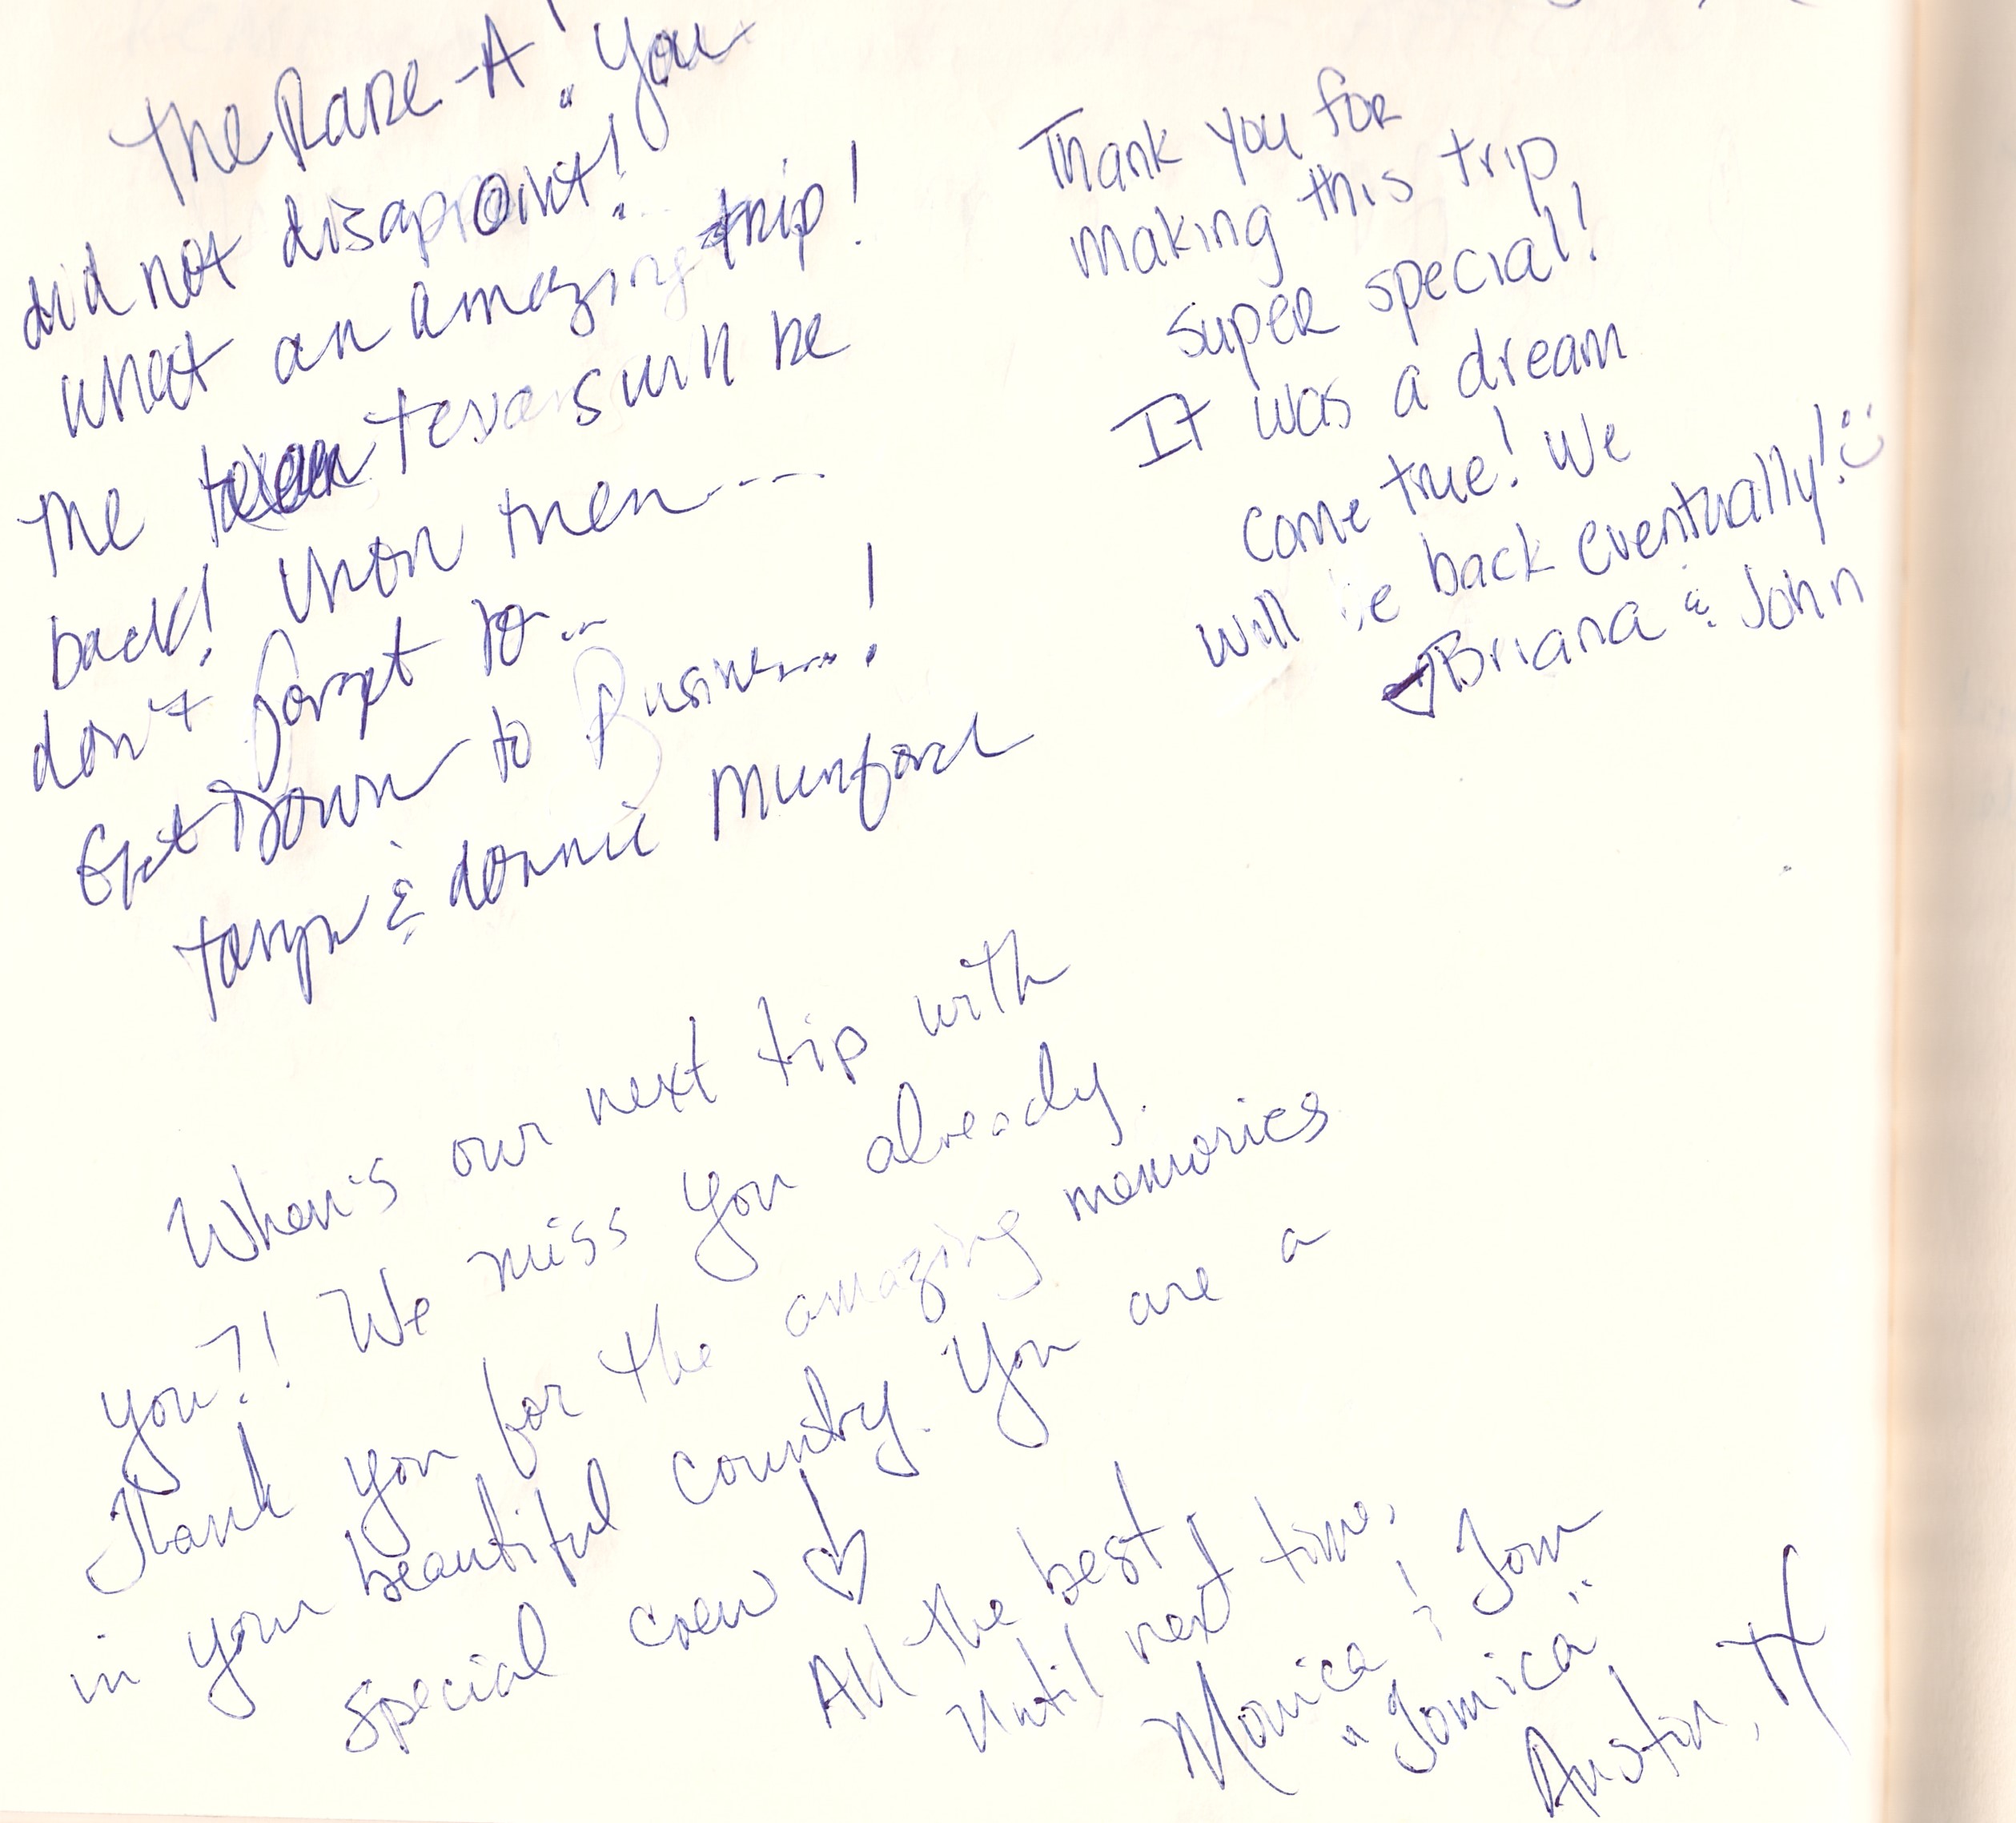 The Rare-A! You
did not disappoint!
what an amazing trip!
The Texans will be
back! Until then----
don't forget to...
Get Down to Business...!
Taryn & Donnie Munford
Thank you for
making this trip
super special!
It was a dream
come true! We
will be back eventually! :)
♡ Briana & John
When's our next trip with
you?! We miss you already.
Thank you for the amazing memories
in your beautiful country. You are a
special crew ♡
All the best
until next time,
Monica & Tom
"Tomica"
Austin, TX